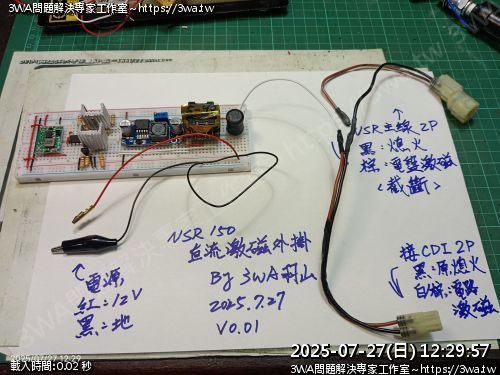 3WA問題解決專家工作室~https://3wa.tw
3WA問題解決專家工作室~https://3wa.tw
NSR主線2P
黑:熄火
棕:電盤激磁
<截斷>
NSR 150
直流激磁外掛
By 3WA羽山
2025.7.27
V0.01
電源
紅:12V
黑:地
接CDI 2P
黑:原熄火
激磁
2025-07-27 12:29
載入時間:0.02 秒
2025-07-27(日) 12:29:57
3WA問題解決專家工作室~https://3wa.tw